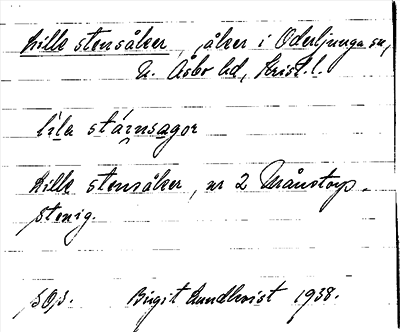 Lille stensåker, åker i Oderljunga sn,
N. Åsbo hd, Krist. l.
lila stáinsagor
Lille stensåker, nr 2 Månstorp.
stenig.
Birgit Lundkvist 1938.